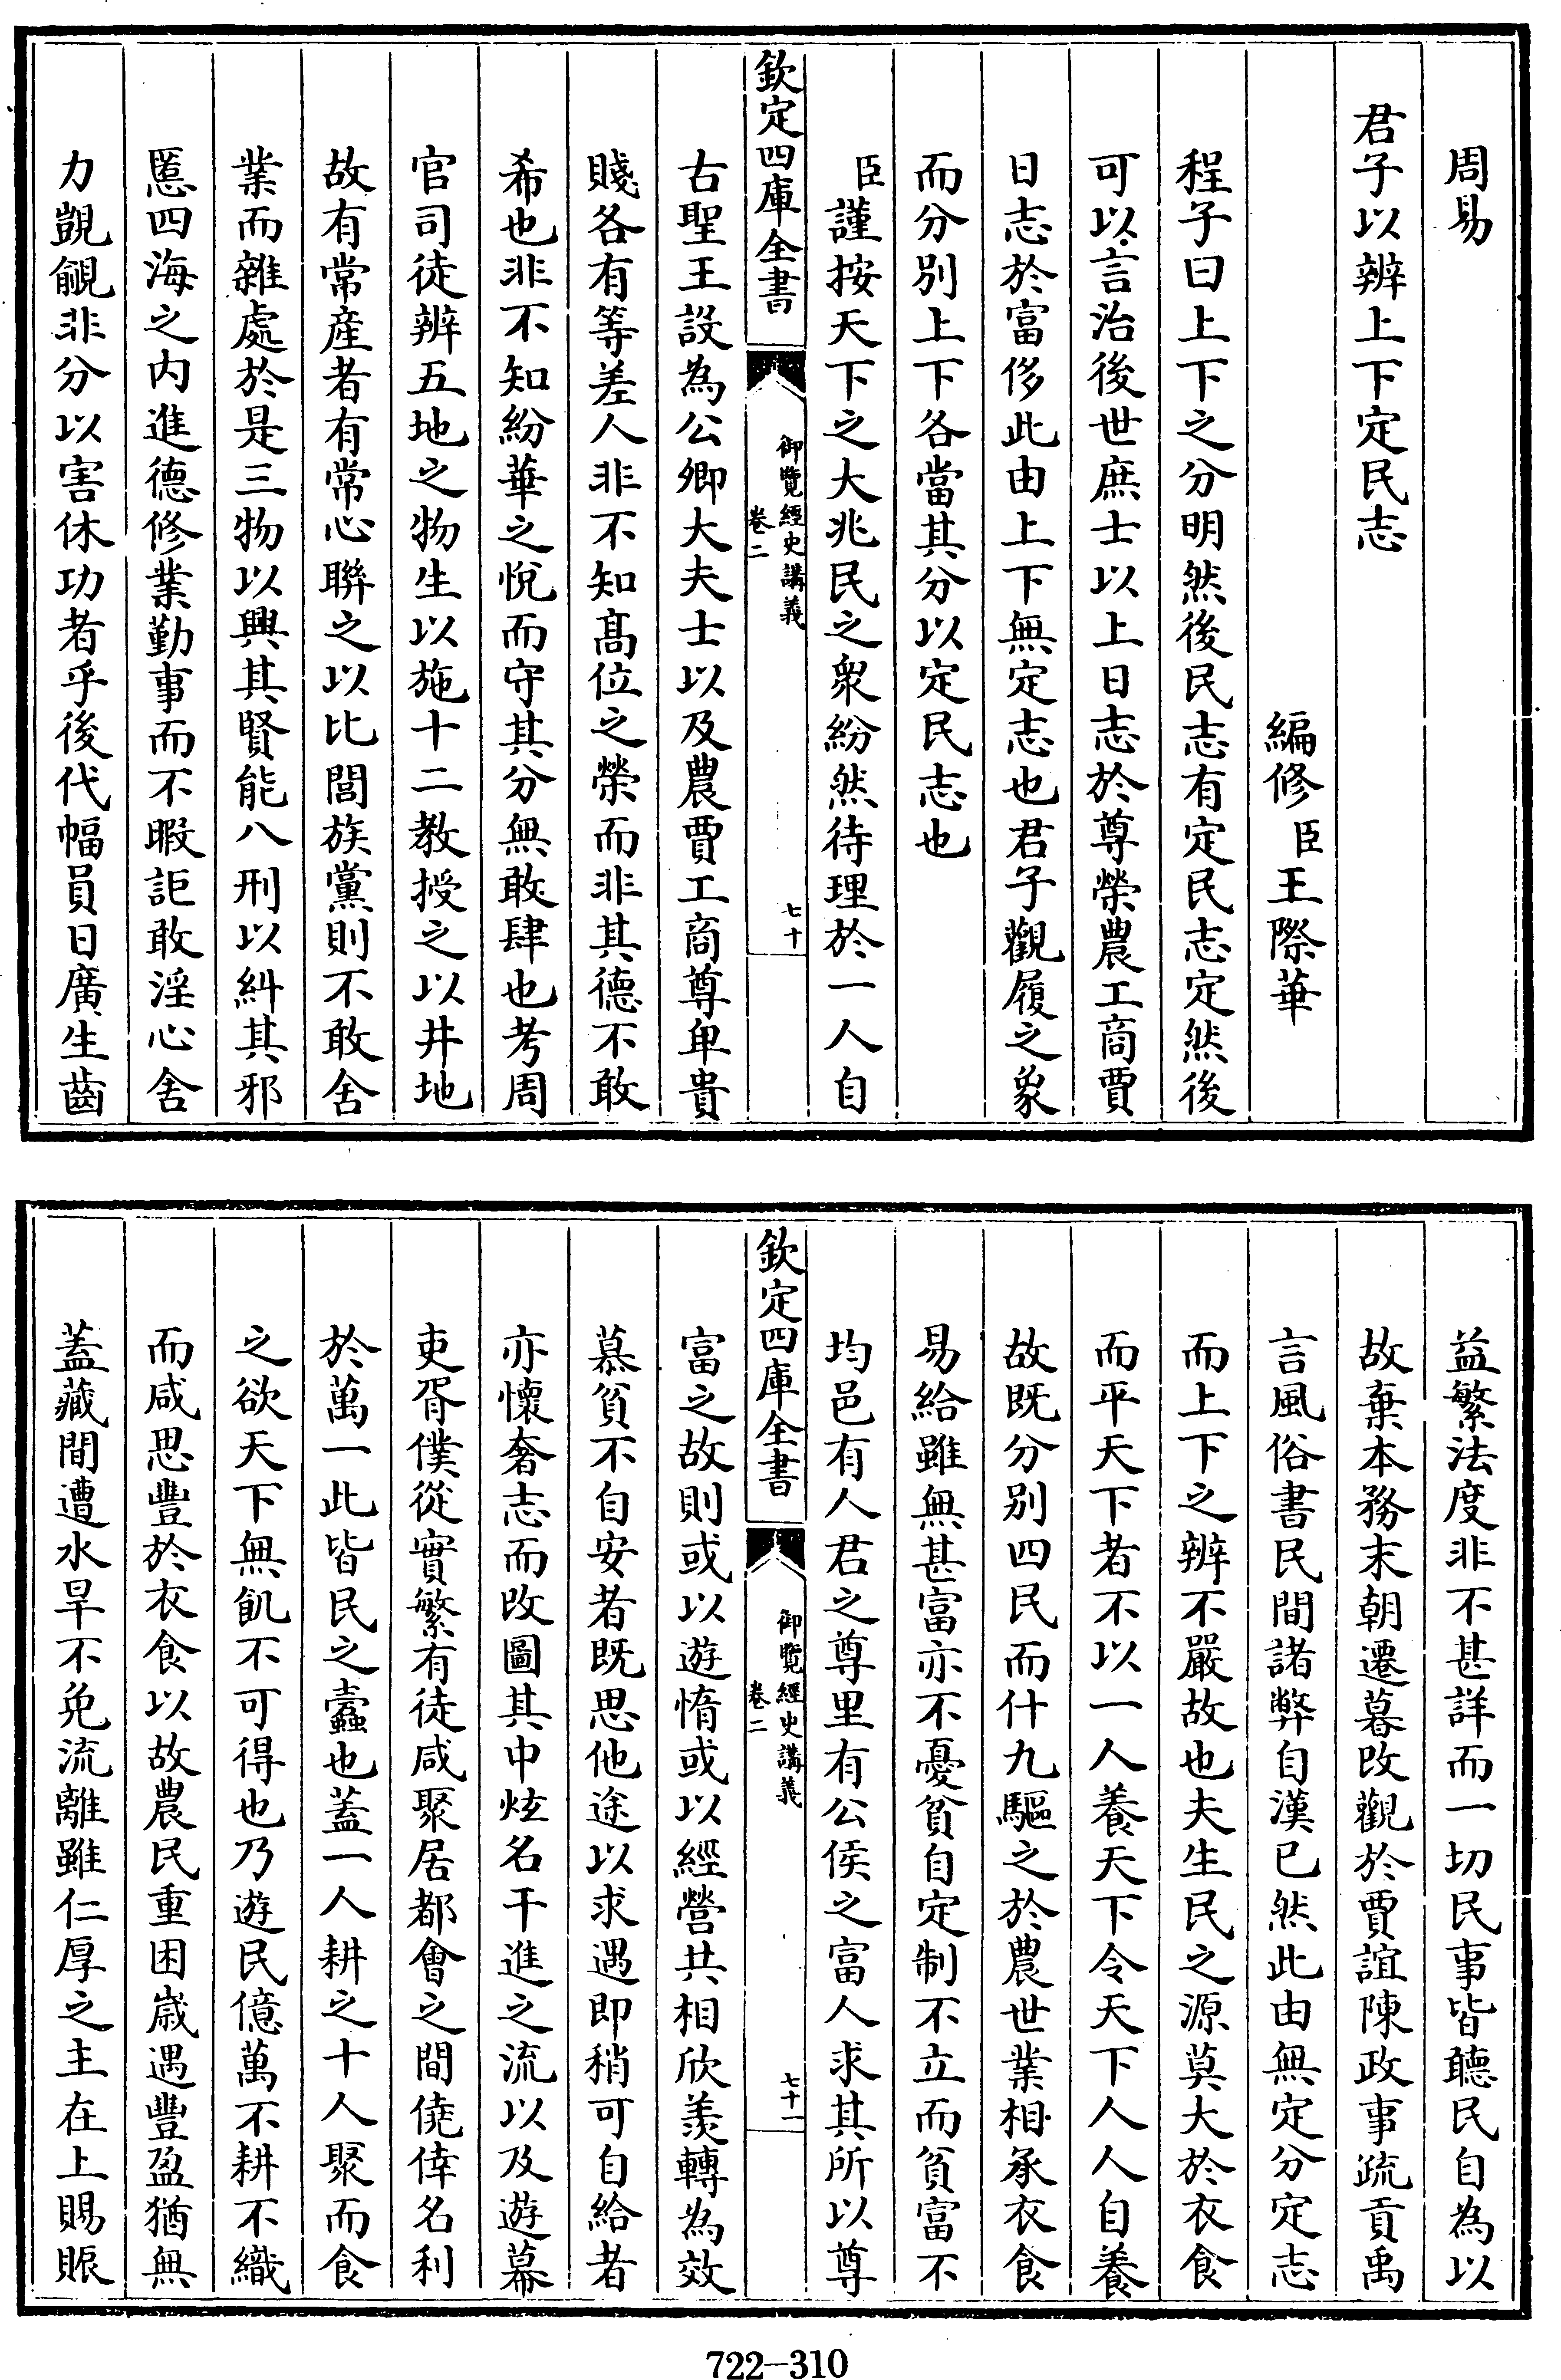 周易
君子以辨上下定民志
編修臣王際華
程子曰上下之分明然後民志有定民志定然後
可以言治後世庶士以上日志於尊榮農工商賈
日志於富侈此由上下無定志也君子觀履之象
而分別上下各當其分以定民志也
臣謹按天下之大兆民之衆紛然待理於一人自
欽定四庫全書
御覽經史講義
卷二
七十
古聖王設為公卿大夫士以及農賈工商尊卑貴
賤各有等差人非不知髙位之榮而非其德不敢
希也非不知紛華之悅而守其分無敢肆也考周
官司徒辨五地之物生以施十二教授之以井地
故有常産者有常心聯之以比閭族黨則不敢舍
業而雜處於是三物以興其賢能八刑以糾其邪
慝四海之内進德修業勤事而不暇詎敢淫心舍
力覬覦非分以害休功者乎後代幅員日廣生齒
益繁法度非不甚詳而一切民事皆聽民自為以
故棄本務末朝遷暮改觀於賈誼陳政事疏貢禹
言風俗書民間諸弊自漢已然此由無定分定志
而上下之辨不嚴故也夫生民之源莫大於衣食
而平天下者不以一人養天下令天下人人自養
故既分别四民而什九驅之於農世業相承衣食
易給雖無甚富亦不憂貧自定制不立而貧富不
均邑有人君之尊里有公侯之富人求其所以尊
欽定四庫全書
御覽經史講義
卷二
七十一
富之故則或以遊惰或以經營共相欣羨轉為效
慕貧不自安者既思他途以求遇即稍可自給者
亦懷奢志而改圖其中炫名干進之流以及遊幕
吏胥僕從實繁有徒咸聚居都會之間僥倖名利
於萬一此皆民之蠹也蓋一人耕之十人聚而食
之欲天下無飢不可得也乃遊民億萬不耕不織
而咸思豐於衣食以故農民重困歲遇豐盈猶無
蓋藏間遭水旱不免流離雖仁厚之主在上賜賑
722-310